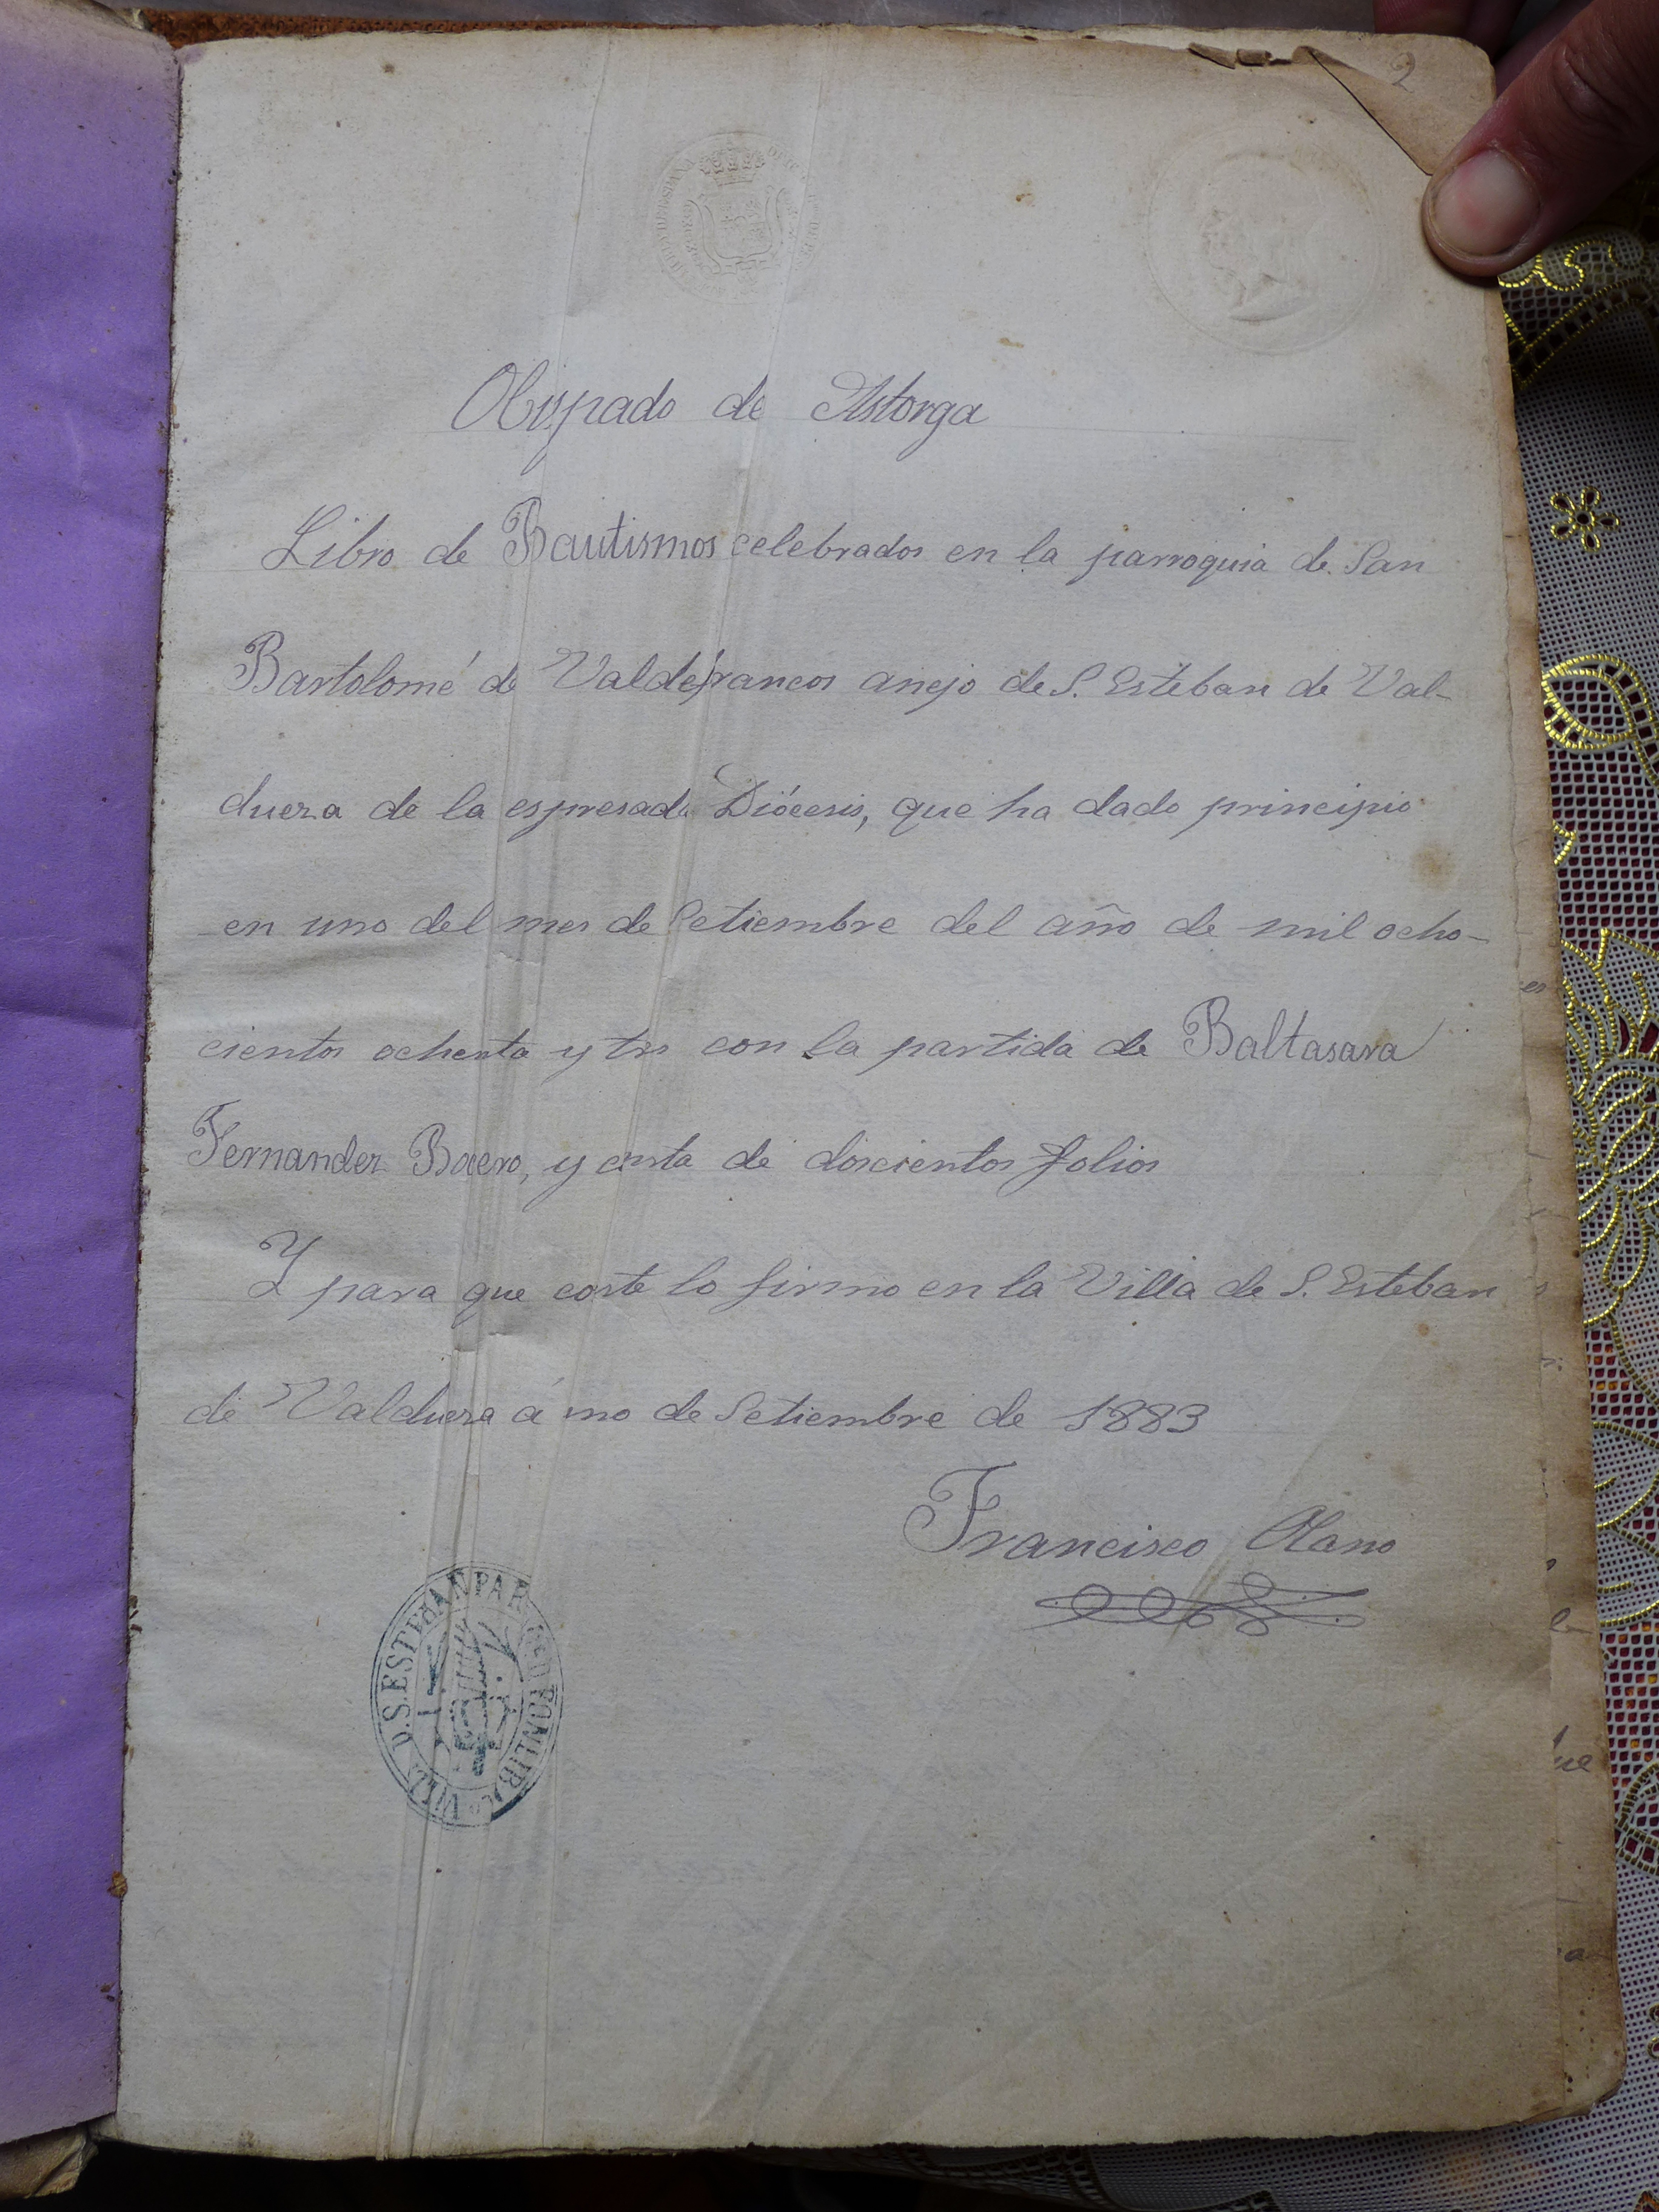 2
Obispado de Astorga
Libro de Bautismos celebrados en la parroquia de San
Bartolomé de Valdefrancos anejo de S. Esteban de Val-
dueza de la espresada Diócesis, que ha dado principio
en uno del mes de Setiembre del año de mil ocho-
cientos ochenta y tres con la partida de Baltasara
Fernandez Boero, y costa de doscientos folios
Y para que coste lo firmo en la Villa de S. Esteban
de Valdueza á uno de Setiembre de 1883
Francisco Olano
D. S. ESTEBAN PAR